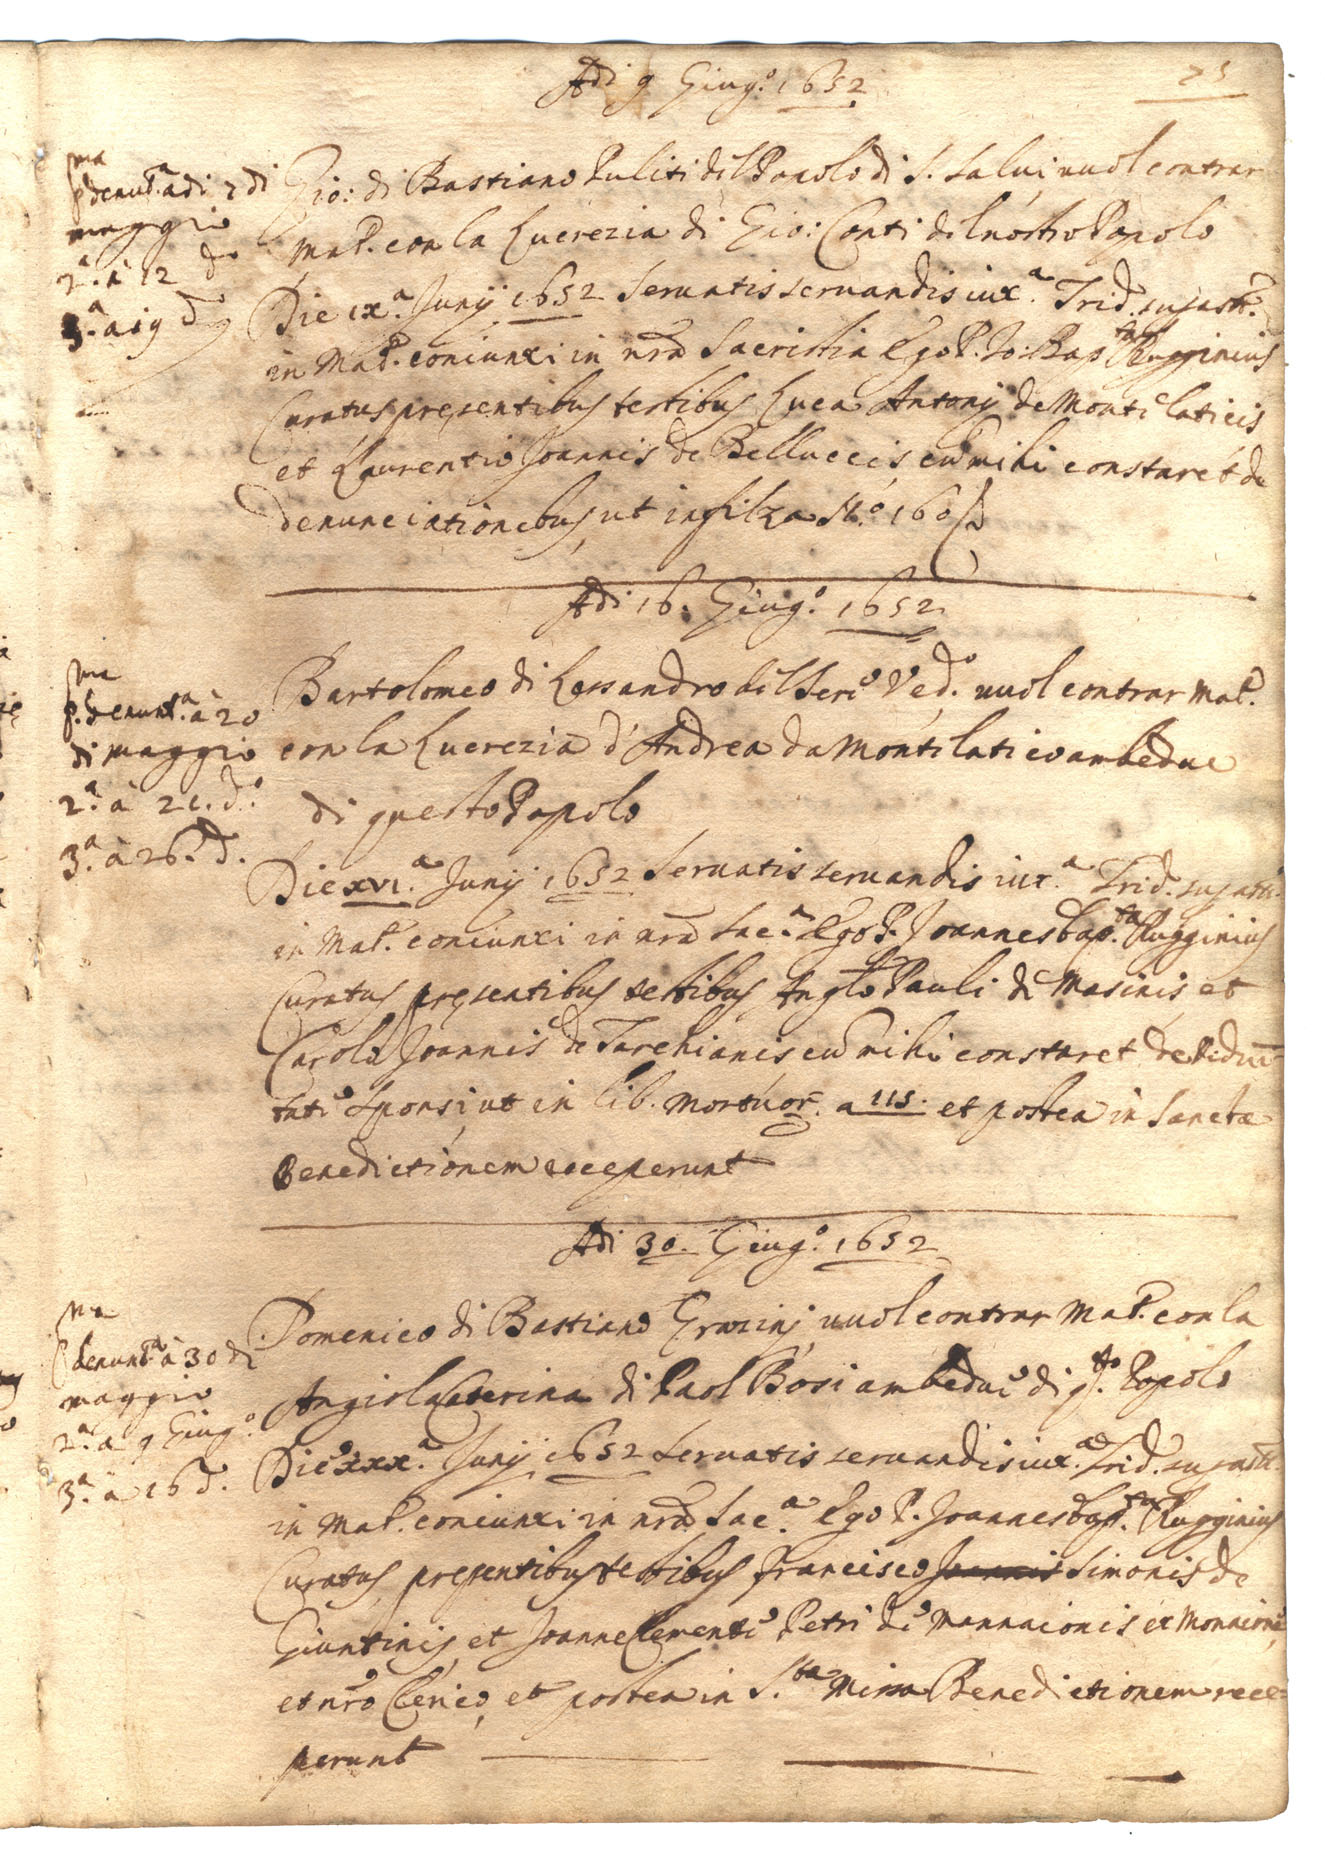 Adi 9 Giug.o 1652
75
ma
p. denut.a adi 2 di
maggio
2.a à 12 do
3.a a 19 d
Gio: di Bastiano Puliti del Popolo di S. Salui uuol contrar
Mat. con la Lucrezia di Gio: Conti del nostro Popolo
Die ix.a Junij 1652 Seruatis seruandis iux.a Trid.
in Mat. coniunxi in nra Sacristia Ego P. Jo: Bap.ta Rugginius
Curatus presentibus testibus Luca Antonij de Monti laticis
et Laurentio Joannis de Belluccis, cum mihi constaret de
denunciationibus, ut in filza N.o 160
Adi 16. Giug.o 1652
ma
p. denunt.a à 20
di maggio
2.a à 21. d.o
3.a à 26. d.
Bartolomeo di Lessandro del Ved.o uuol contrar Mat.
con la Lucrezia d'Andrea da Monti latico ambedue
di questo Popolo
Die xvi.a Junij 1652 Seruatis seruandis iux.a Trid.
in Mat. coniunxi in nra Sac.a Ego P. Joannes bap.ta Rugginius
Curatus presentibus testibus Anglo Pauli de Masinis et
Carolo Joannis de Tarchianis cum mihi constaret de Vidui
tate Sponsi, ut in lib. Mortuor. a 115. et postea in Sancta
Benedictionem receperunt
Adi 30. Giug.o 1652
ma
p denunt.a à 30 di
maggio
2.a a 9 Giug.o
3.a à 16 d.
Domenico di Bastiano Grazinj uuol contrar Mat. con la
Angiola Caterina di Paol Bosi ambedue di q.to Popolo
Die xxx.a Junij 1652 Seruatis seruandis iux.a Trid.
in Mat. coniunxi in nra Sac.a Ego P. Joannes bap.ta Rugginius
Curatus presentibus testibus Francisco Joannis Simonis de
Giuntinis, et Joanne Clemente Petri de Mannaionis
et nro Clerico, et postea in S.ta Missa Benedictionem rece
perunt